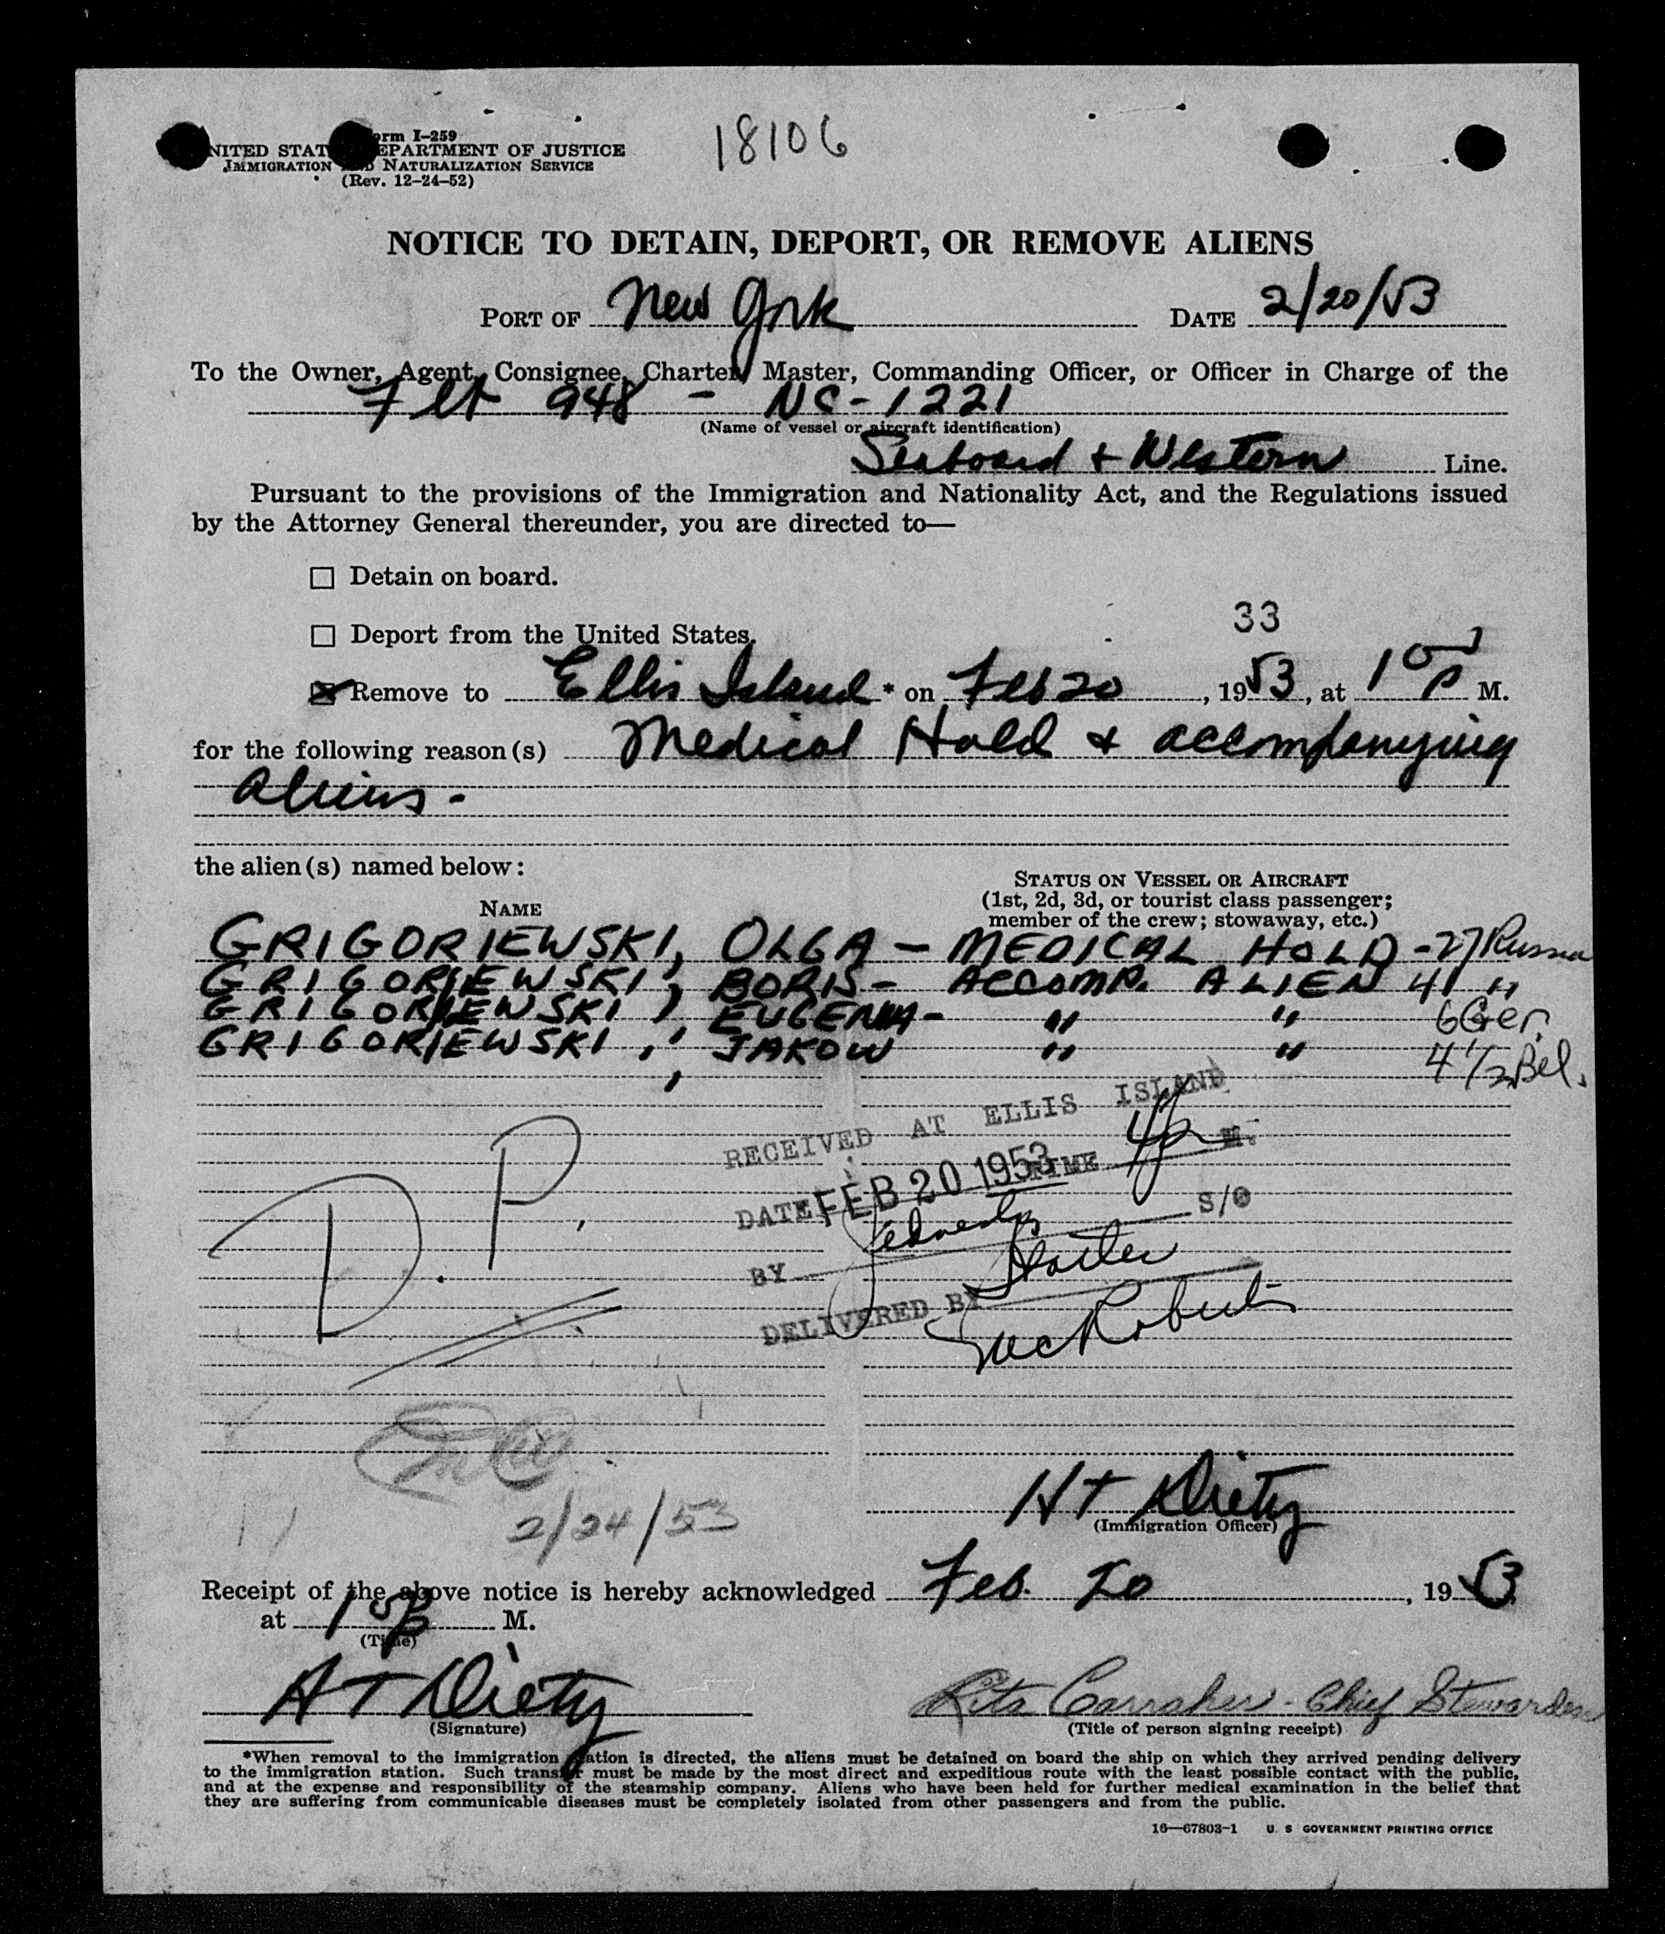 18106
Form I-259
UNITED STATES DEPARTMENT OF JUSTICE
IMMIGRATION AND NATURALIZATION SERVICE
(Rev. 12-24-52)
NOTICE TO DETAIN, DEPORT, OR REMOVE ALIENS
PORT OF New York DATE 2/20/53
To the Owner, Agent, Consignee, Charter, Master, Commanding Officer, or Officer in Charge of the
Flt 948 - NC-1221
(Name of vessel or aircraft identification)
Seaboard + Western Line.
Pursuant to the provisions of the Immigration and Nationality Act, and the Regulations issued
by the Attorney General thereunder, you are directed to—
Detain on board.
33
Deport from the United States.
Remove to Ellis Island * on Feb 20, 1953, at 1 00 P M.
for the following reason(s) Medical Hold & accompanying
aliens -
the alien(s) named below:
NAME
STATUS ON VESSEL OR AIRCRAFT
(1st, 2d, 3d, or tourist class passenger;
member of the crew; stowaway, etc.)
GRIGORIEWSKI, OLGA - MEDICAL HOLD - 27 Russia
GRIGORIEWSKI, BORIS - ACCOMP. ALIEN 41 "
GRIGORIEWSKI, EUGENIA - " " 6 Ger.
GRIGORIEWSKI, JAKOW " " 4 1/2 Bel.
RECEIVED AT ELLIS ISLAND
DATE FEB 20 1953 TIME 4 P M.
D.P.
BY S/O
DELIVERED BY
2/24/53
HT Dietz
(Immigration Officer)
Receipt of the above notice is hereby acknowledged Feb. 20, 1953
at 1 00 P M.
(Time)
HT Dietz
(Signature)
Rita Carraher - Chief Stewardess
(Title of person signing receipt)
*When removal to the immigration station is directed, the aliens must be detained on board the ship on which they arrived pending delivery
to the immigration station. Such transfer must be made by the most direct and expeditious route with the least possible contact with the public,
and at the expense and responsibility of the steamship company. Aliens who have been held for further medical examination in the belief that
they are suffering from communicable diseases must be completely isolated from other passengers and from the public.
16—67803-1 U. S GOVERNMENT PRINTING OFFICE